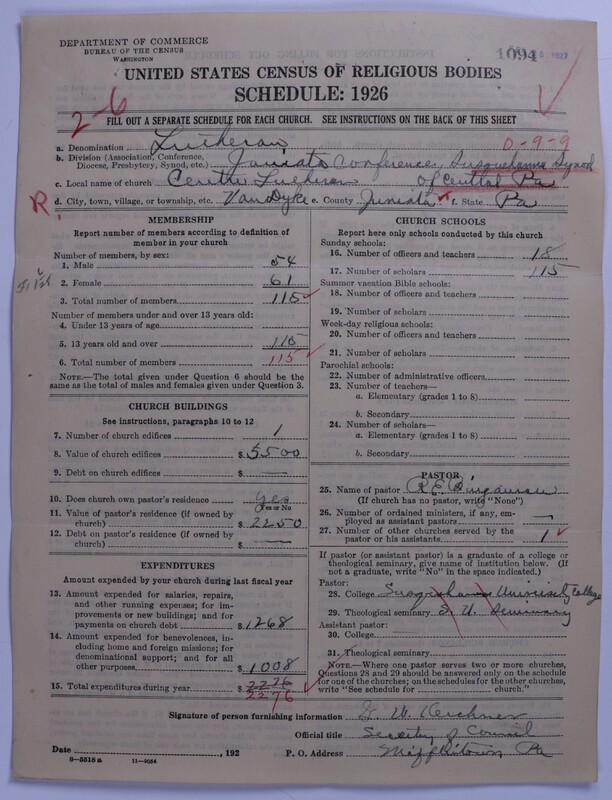 DEPARTMENT OF COMMERCE
BUREAU OF THE CENSUS
WASHINGTON
1094
1927
UNITED STATES CENSUS OF RELIGIOUS BODIES
SCHEDULE: 1926
2-6
FILL OUT A SEPARATE SCHEDULE FOR EACH CHURCH. SEE INSTRUCTIONS ON THE BACK OF THIS SHEET
a. Denomination Lutheran 0-9-9
b. Division (Association, Conference, Diocese, Presbytery, Synod, etc.) Juniata Conference, Susquehanna Synod
c. Local name of church Lutheran of Central Pa
R d. City, town, village, or township, etc. VanDyke e. County Juniata f. State Pa
MEMBERSHIP
Report number of members according to definition of
member in your church
Number of members, by sex:
1. Male 54
2. Female 61
3. Total number of members 115
Number of members under and over 13 years old:
4. Under 13 years of age
5. 13 years old and over 115
6. Total number of members 115
NOTE.—The total given under Question 6 should be the
same as the total of males and females given under Question 3.
CHURCH BUILDINGS
See instructions, paragraphs 10 to 12
7. Number of church edifices 1
8. Value of church edifices $ 5500
9. Debt on church edifices $ —
10. Does church own pastor's residence yes
(Yes or No)
11. Value of pastor's residence (if owned by
church) $ 2250
12. Debt on pastor's residence (if owned by
church) $ —
EXPENDITURES
Amount expended by your church during last fiscal year
13. Amount expended for salaries, repairs,
and other running expenses; for im-
provements or new buildings; and for
payments on church debt $ 1268
14. Amount expended for benevolences, in-
cluding home and foreign missions; for
denominational support; and for all
other purposes $ 1008
15. Total expenditures during year $ 2276
2276
CHURCH SCHOOLS
Report here only schools conducted by this church
Sunday schools:
16. Number of officers and teachers 18
17. Number of scholars 115
Summer vacation Bible schools:
18. Number of officers and teachers
19. Number of scholars
Week-day religious schools:
20. Number of officers and teachers
21. Number of scholars
Parochial schools:
22. Number of administrative officers
23. Number of teachers—
a. Elementary (grades 1 to 8)
b. Secondary
24. Number of scholars—
a. Elementary (grades 1 to 8)
b. Secondary
PASTOR
25. Name of pastor R E
(If church has no pastor, write "None")
26. Number of ordained ministers, if any, em-
ployed as assistant pastors —
27. Number of other churches served by the
pastor or his assistants 1
If pastor (or assistant pastor) is a graduate of a college or
theological seminary, give name of institution below. (If
not a graduate, write "No" in the space indicated.)
Pastor:
28. College Susquehanna University College
29. Theological seminary S. U. Seminary
Assistant pastor:
30. College
31. Theological seminary
NOTE.—Where one pastor serves two or more churches,
Questions 28 and 29 should be answered only on the schedule
for one of the churches; on the schedules for the other churches,
write "See schedule for church."
Signature of person furnishing information W.
Official title Secretary of Council
Date , 192 P. O. Address Mifflintown Pa
9-5518 a 11-9054